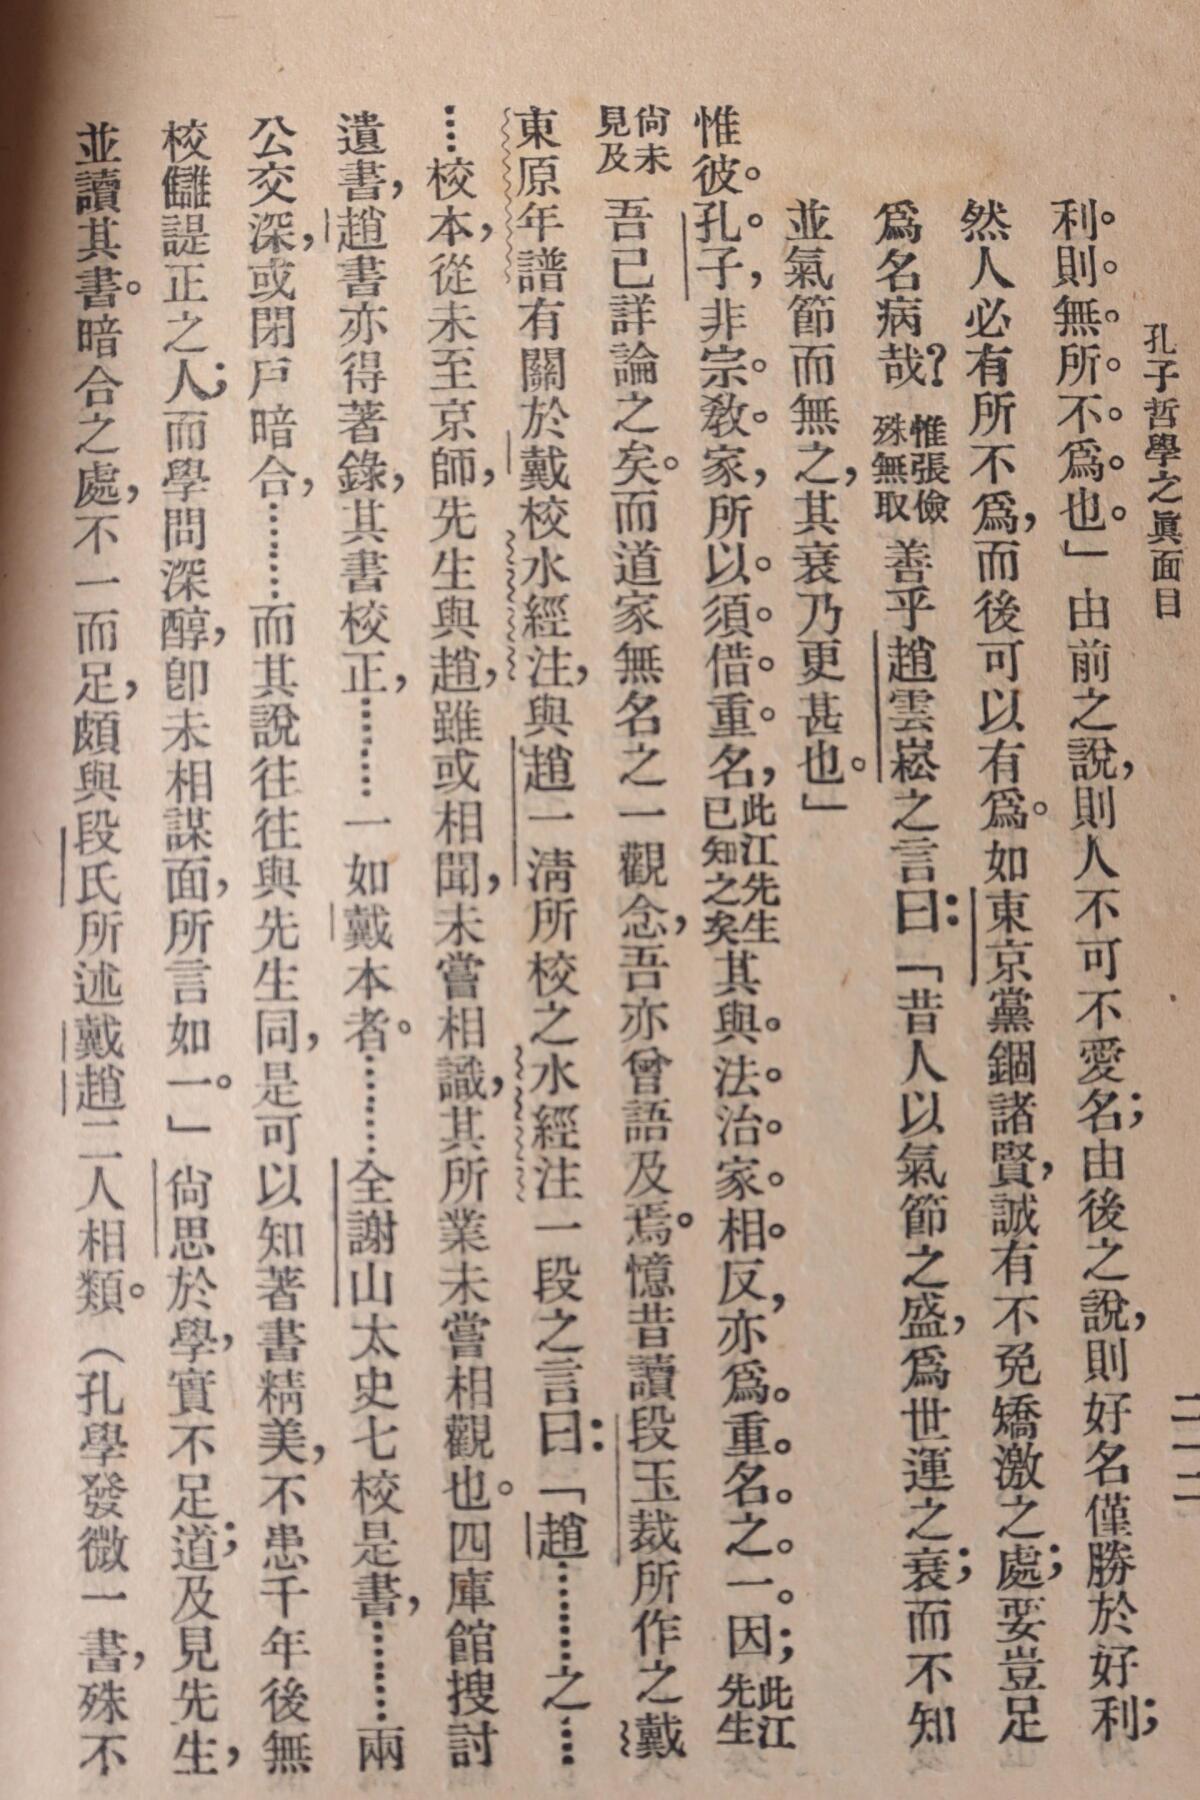 孔子哲學之眞面目
二一二
利。則。無。所。不。爲。也。」由前之說，則人不可不愛名；由後之說，則好名僅勝於好利；
然人必有所不爲，而後可以有爲。如東京黨錮諸賢，誠有不免矯激之處；要豈足
爲名病哉？惟張儉殊無取善乎趙雲崧之言曰：「昔人以氣節之盛，爲世運之衰；而不知
並氣節而無之，其衰乃更甚也。」
惟彼。孔。子，非宗。敎。家，所以。須。借。重。名，此江先生已知之矣其與。法。治。家。相。反，亦爲。重。名。之。一。因；此江先生
尙未見及吾已詳論之矣。而道家無名之一觀念，吾亦曾語及焉。憶昔讀段玉裁所作之戴
東原年譜有關於戴校水經注，與趙一淸所校之水經注一段之言曰：「趙………之……
……校本，從未至京師，先生與趙，雖或相聞，未嘗相識，其所業未嘗相觀也。四庫館搜討
遺書，趙書亦得著錄，其書校正，………一如戴本者。………全謝山太史七校是書，………兩
公交深，或閉戶暗合，………而其說往往與先生同，是可以知著書精美，不患千年後無
校讎諟正之人；而學問深醇，卽未相謀面，所言如一。」尙思於學，實不足道；及見先生，
並讀其書。暗合之處，不一而足，頗與段氏所述戴趙二人相類。（孔學發微一書，殊不